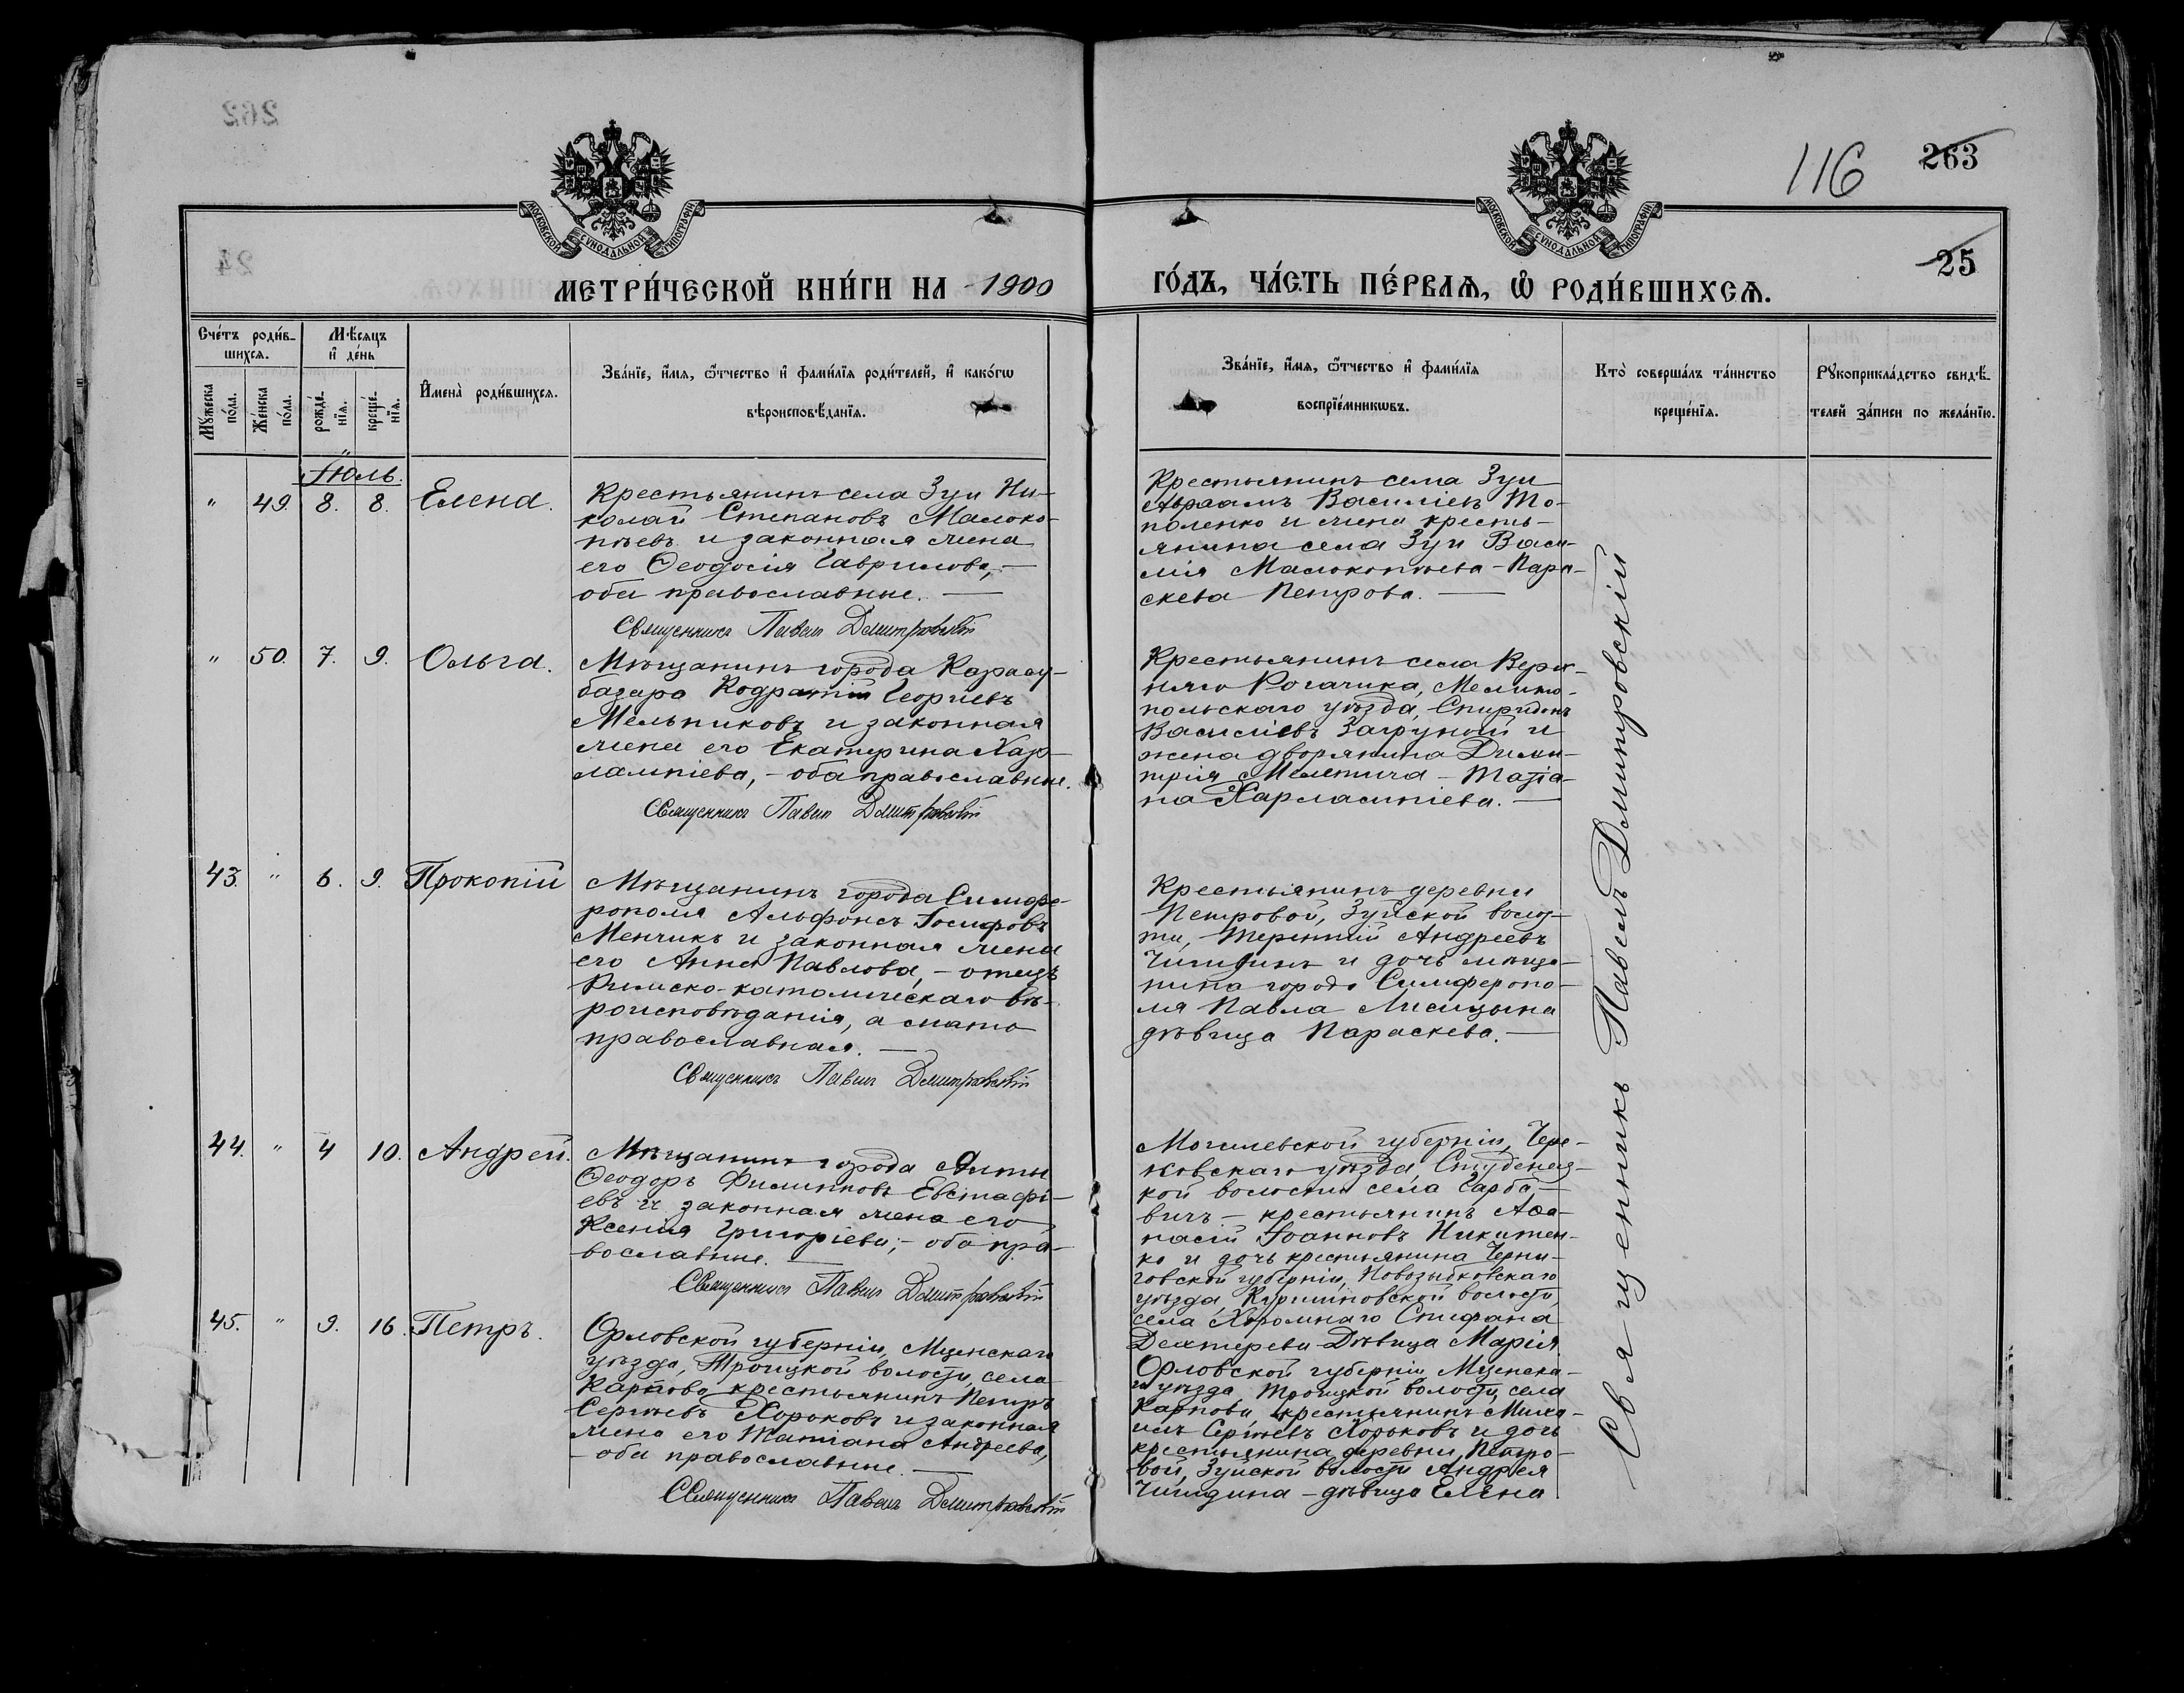 262
116
263
МОСКОВСКОЙ СѴНОДАЛЬНОЙ ТИПОГРАФІИ
МОСКОВСКОЙ СѴНОДАЛЬНОЙ ТИПОГРАФІИ
24
25
МЕТРИ́ЧЕСКОЙ КНИ́ГИ НА 1900
ГО́ДЪ, ЧА́СТЬ ПЕ́РВАѦ, Ѽ РОДИ́ВШИХСѦ.
Сче́тъ роди́в-
шихсѧ.
Мѣ́сѧцъ
и҆ де́нь
Мꙋ́жеска по́ла.
Же́нска по́ла.
рожде́нїѧ.
креще́нїѧ.
И҆мена̀ роди́вшихсѧ.
Зва́нїе, и҆́мѧ, ѻ҆́тчество и҆ фами́лїѧ роди́телей, и҆ како́гѡ
вѣроисповѣ́данїѧ.
Зва́нїе, и҆́мѧ, ѻ҆́тчество и҆ фами́лїѧ
воспрїе́мникѡвъ.
Кто̀ соверша́лъ та́инство
креще́нїѧ.
Рꙋкоприкла́дство свидѣ́-
телей за́писи по жела́нїю.
Іюль.
" 49. 8. 8. Елена.
Крестьянинъ села Зуи Ни-
колай Степановъ Малоко-
пѣевъ и законная жена
его Ѳеодосія Гаврилова, —
оба православные. —
Священникъ Павелъ Дмитровскій
Крестьянинъ села Зуи
Авраамъ Василіевъ То-
поленко и жена кресть-
янина села Зуи Васи-
лія Малокопѣева - Пара-
скева Петрова. —
" 50. 7. 9. Ольга.
Мѣщанинъ города Карасу-
базара Кодратій Георгіевъ
Мельниковъ и законная
жена его Екатерина Хар-
лампіева, - оба православные.
Священникъ Павелъ Дмитровскій
Крестьянинъ села Верх-
няго Рогачика, Мелито-
польскаго уѣзда, Спиридонъ
Василіевъ Загруной и
жена дворянина Дими-
трія Мелетича - Татіа-
на Харлампіева. —
43. " 6. 9. Прокопій
Мѣщанинъ города Симфе-
рополя Альфонсъ Іосифовъ
Менчикъ и законная жена
его Анна Павлова, - отецъ
Римско-католическаго вѣ-
роисповѣданія, а мать
православная. —
Священникъ Павелъ Дмитровскій
Крестьянинъ деревни
Петровой, Зуйской волос-
ти, Терентій Андреевъ
и дочь мѣща-
нина города Симферопо-
ля Павла Лисицына
дѣвица Параскева. —
44. " 4 10. Андрей.
Мѣщанинъ города Ялты
Ѳеодоръ Филипповъ Евстафі-
евъ и законная жена его
Ксенія Григоріева; - оба пра-
вославные. —
Священникъ Павелъ Дмитровскій
Могилевской губерніи, Чере-
ковскаго уѣзда, Студенец-
кой волости села Гарба-
вичъ - крестьянинъ Аѳа-
насій Іоанновъ Никитен-
ко и дочь крестьянина Черни-
говской губерніи, Новозыбковскаго
уѣзда, волости,
села Хоромнаго Стефана
Дехтерева - Дѣвица Марія.
45. " 9. 16. Петръ.
Орловской губерніи, Мценскаго
уѣзда, Троицкой волости, села
Карпова крестьянинъ Петръ
Сергѣевъ Хорьковъ и законная
жена его Татіана Андреева,
- оба православные. —
Священникъ Павелъ Дмитровскій
Орловской губерніи Мценска-
го уѣзда, Троицкой волости, села
Карпова, крестьянинъ Миха-
илъ Сергѣевъ Хорьковъ и дочь
крестьянина деревни Петро-
вой, Зуйской волости Андрея
Чиндина - дѣвица Елена
Священникъ Павелъ Дмитровскій